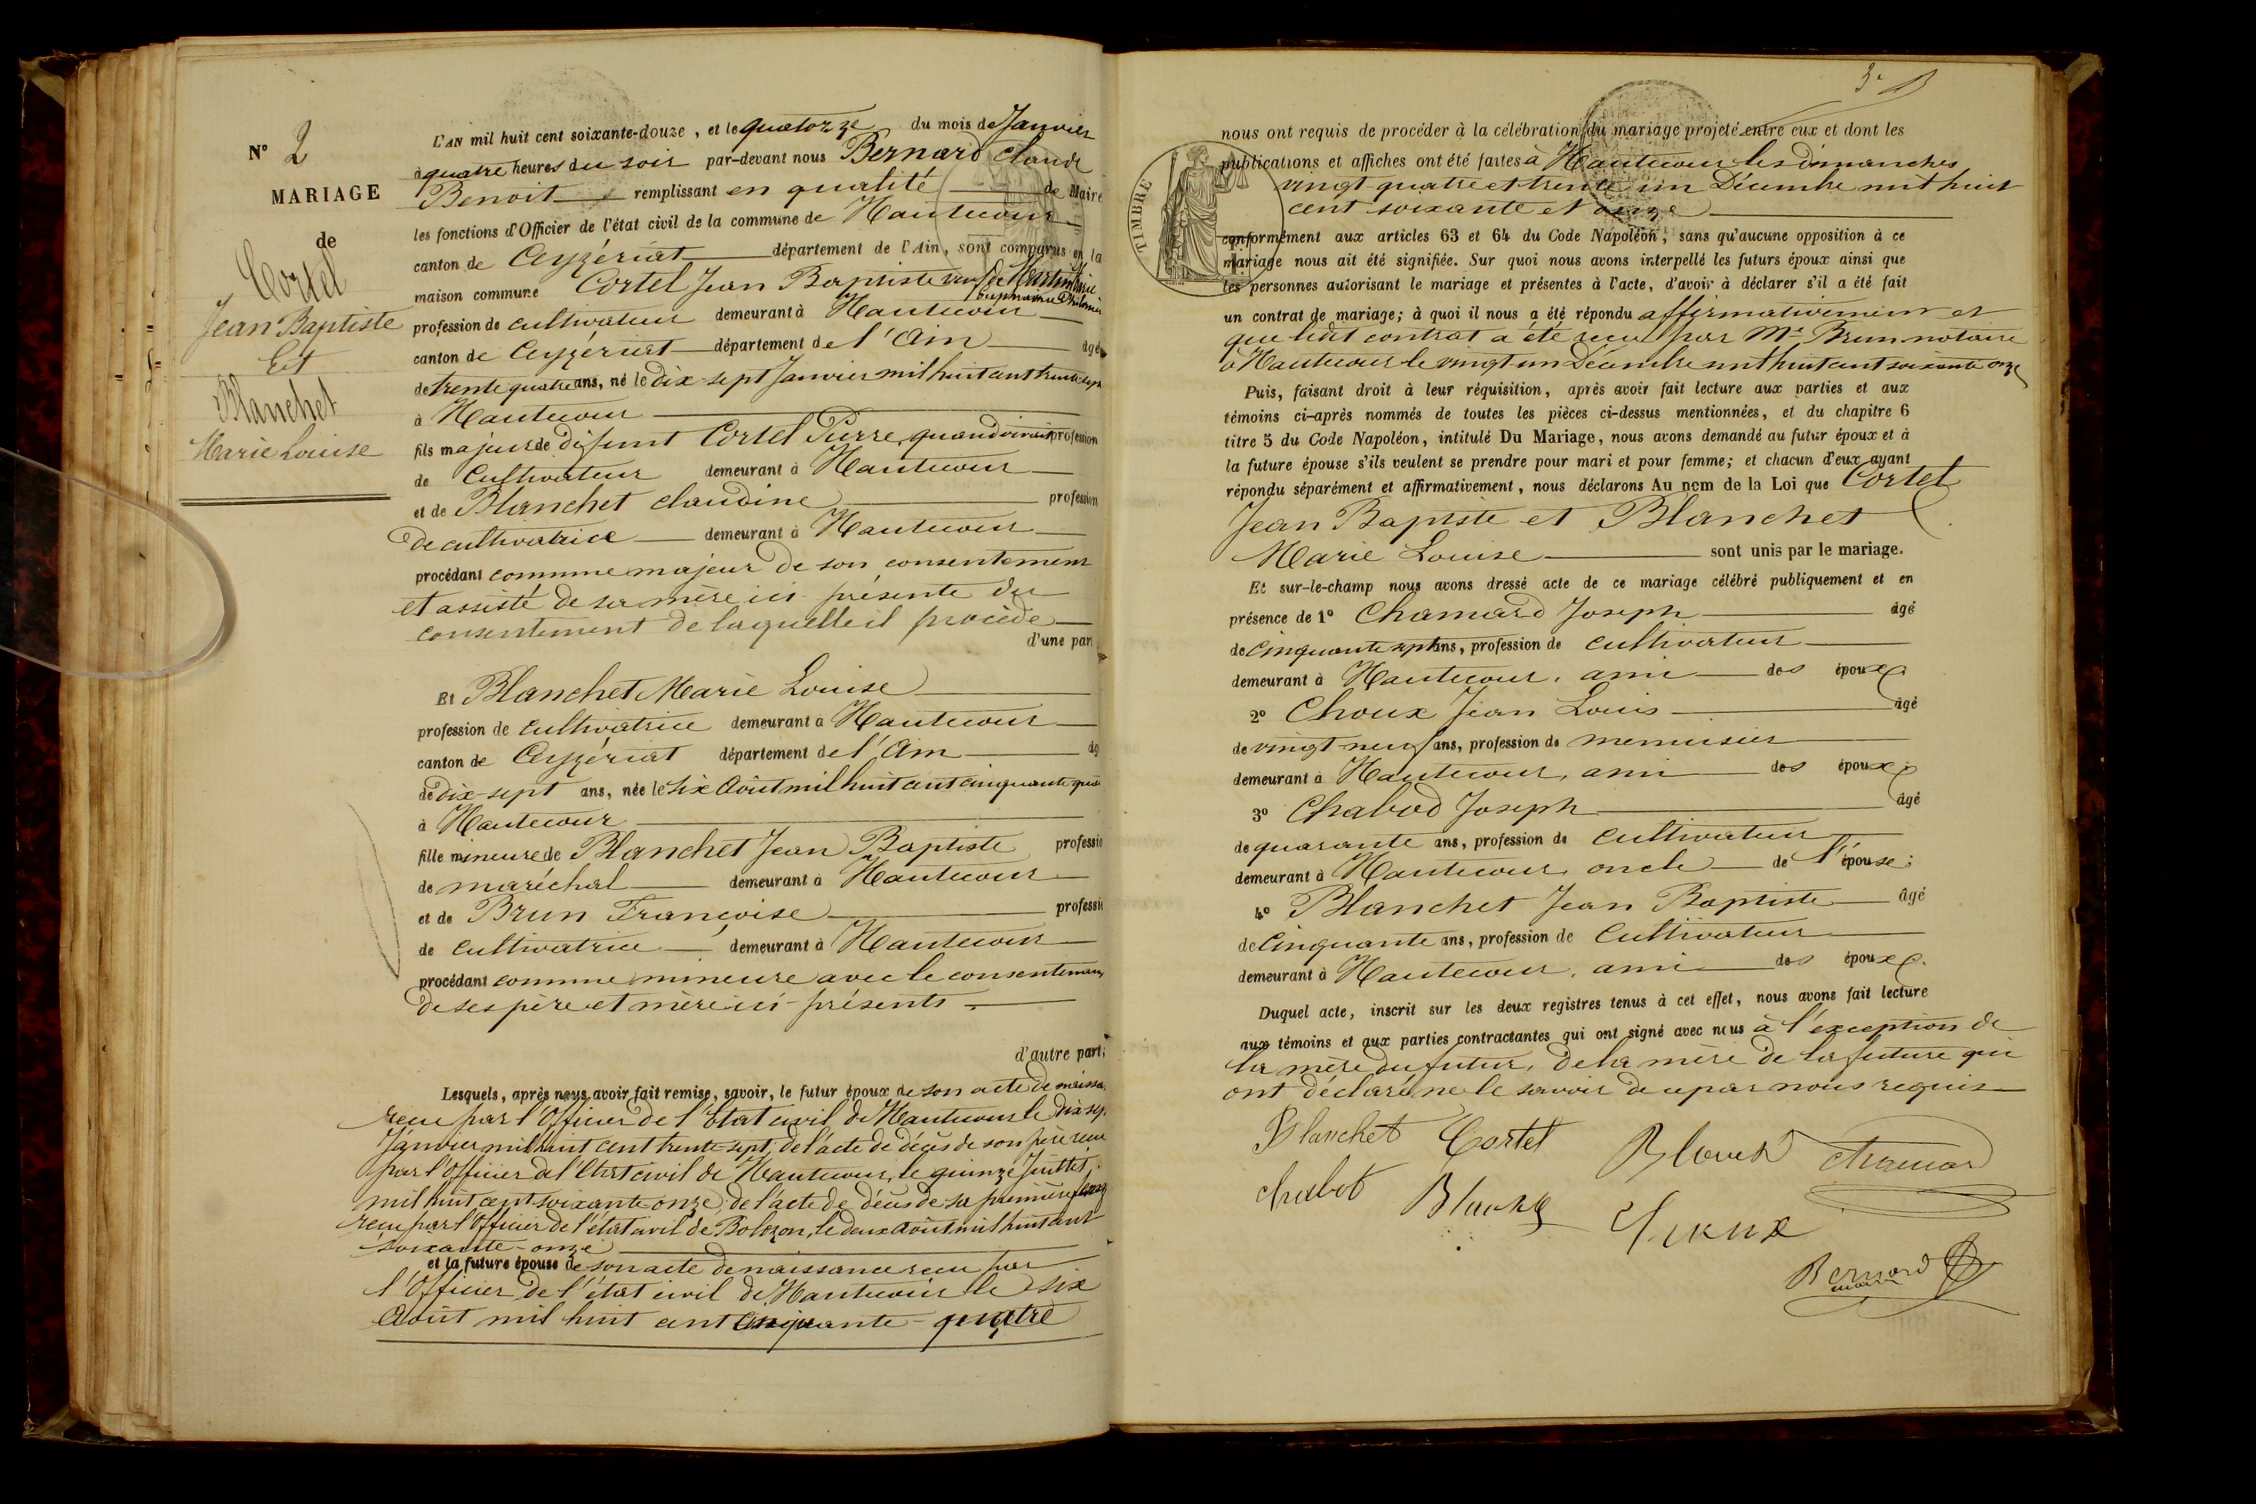 N° 2
MARIAGE
de
Cortel
Jean Baptiste
Et
Blanchet
Marie Louise
L'AN mil huit cent soixante-douze, et le quatorze du mois de Janvier
à quatre heures du soir par-devant nous Bernard Claude
Benoit remplissant en qualité de Maire
les fonctions d'Officier de l'état civil de la commune de Hautecour
canton de Ceyzériat département de l'Ain, sont comparus en la
maison commune Cortel Jean Baptiste veuf de Marie
profession de cultivateur demeurant à Hautecour
canton de Ceyzériat département de l'Ain âgé
de trente quatre ans, né le dix-sept Janvier mil huit cent trente sept
à Hautecour
fils majeur de défunt Cortel Pierre, quand vivait profession
de Cultivateur demeurant à Hautecour
et de Blanchet Claudine profession
de cultivatrice demeurant à Hautecour
procédant comme majeur de son consentement
et assisté de sa mère ici présente du
consentement de laquelle il procède
d'une part
Et Blanchet Marie Louise
profession de cultivatrice demeurant à Hautecour
canton de Ceyzériat département de l'Ain âg
de dix-sept ans, née le six Août mil huit cent cinquante qua
à Hautecour
fille mineure de Blanchet Jean Baptiste professio
de maréchal demeurant à Hautecour
et de Brun Françoise professio
de cultivatrice demeurant à Hautecour
procédant comme mineure avec le consentement
de ses père et mère ici présents
d'autre part;
Lesquels, après nous avoir fait remise, savoir, le futur époux de son acte de naissa
reçu par l'Officier de l'Etat civil de Hautecour le dix sept
Janvier mil huit cent trente-sept, de l'acte de décès de son père reçu
par l'Officier de l'Etat civil de Hautecour, le quinze Juillet
mil huit cent soixante onze, de l'acte de décès de sa première femme
reçu par l'Officier de l'état civil de Bolozon, le deux Août mil huit cent
soixante-onze
et la future épouse de son acte de naissance reçu par
l'Officier de l'état civil de Hautecour le six
Août mil huit cent cinquante-quatre
TIMBRE
nous ont requis de procéder à la célébration du mariage projeté entre eux et dont les
publications et affiches ont été faites à Hautecour les dimanches
vingt quatre et trente un Décembre mil huit
cent soixante et onze
conformément aux articles 63 et 64 du Code Napoléon, sans qu'aucune opposition à ce
mariage nous ait été signifiée. Sur quoi nous avons interpellé les futurs époux ainsi que
les personnes autorisant le mariage et présentes à l'acte, d'avoir à déclarer s'il a été fait
un contrat de mariage; à quoi il nous a été répondu affirmativement et
que ledit contrat a été reçu par Me Brun notaire
à Hautecour le vingt un Décembre mil huit cent soixante onze
Puis, faisant droit à leur réquisition, après avoir fait lecture aux parties et aux
témoins ci-après nommés de toutes les pièces ci-dessus mentionnées, et du chapitre 6
titre 5 du Code Napoléon, intitulé Du Mariage, nous avons demandé au futur époux et à
la future épouse s'ils veulent se prendre pour mari et pour femme; et chacun d'eux ayant
répondu séparément et affirmativement, nous déclarons Au nom de la Loi que Cortel
Jean Baptiste et Blanchet
Marie Louise sont unis par le mariage.
Et sur-le-champ nous avons dressé acte de ce mariage célébré publiquement et en
présence de 1° Chamard Joseph âgé
de cinquante sept ans, profession de cultivateur
demeurant à Hautecour, ami des époux
2° Choux Jean Louis âgé
de vingt-neuf ans, profession de menuisier
demeurant à Hautecour, ami des époux;
3° Chabod Joseph âgé
de quarante ans, profession de cultivateur
demeurant à Hautecour oncle de l'épouse;
4° Blanchet Jean Baptiste âgé
de cinquante ans, profession de cultivateur
demeurant à Hautecour, ami des époux.
Duquel acte, inscrit sur les deux registres tenus à cet effet, nous avons fait lecture
aux témoins et aux parties contractantes qui ont signé avec nous à l'exception de
la mère du futur, de la mère de la future qui
ont déclaré ne le savoir de ce par nous requis
Blanchet Cortel Chamard
Chabot
Choux
Bernard
maire